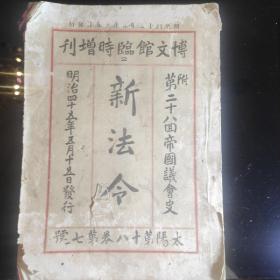 博文館臨時增刊
附 第二十八回帝國議會史
新法令
明治四十五年五月十五日發行
太陽第十八卷第七號